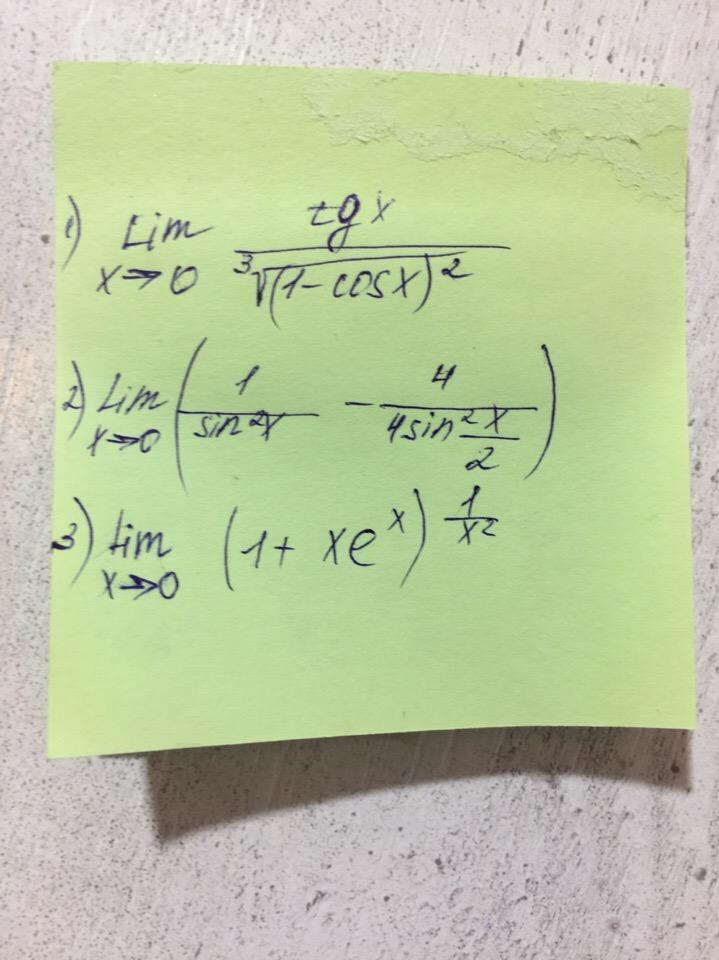 1) Lim x→0 tg x / ³√(1-cosx)²
2) Lim x→0 (1/sin²x - 4/4sin² x/2)
3) Lim x→0 (1+ xeˣ)^1/x²